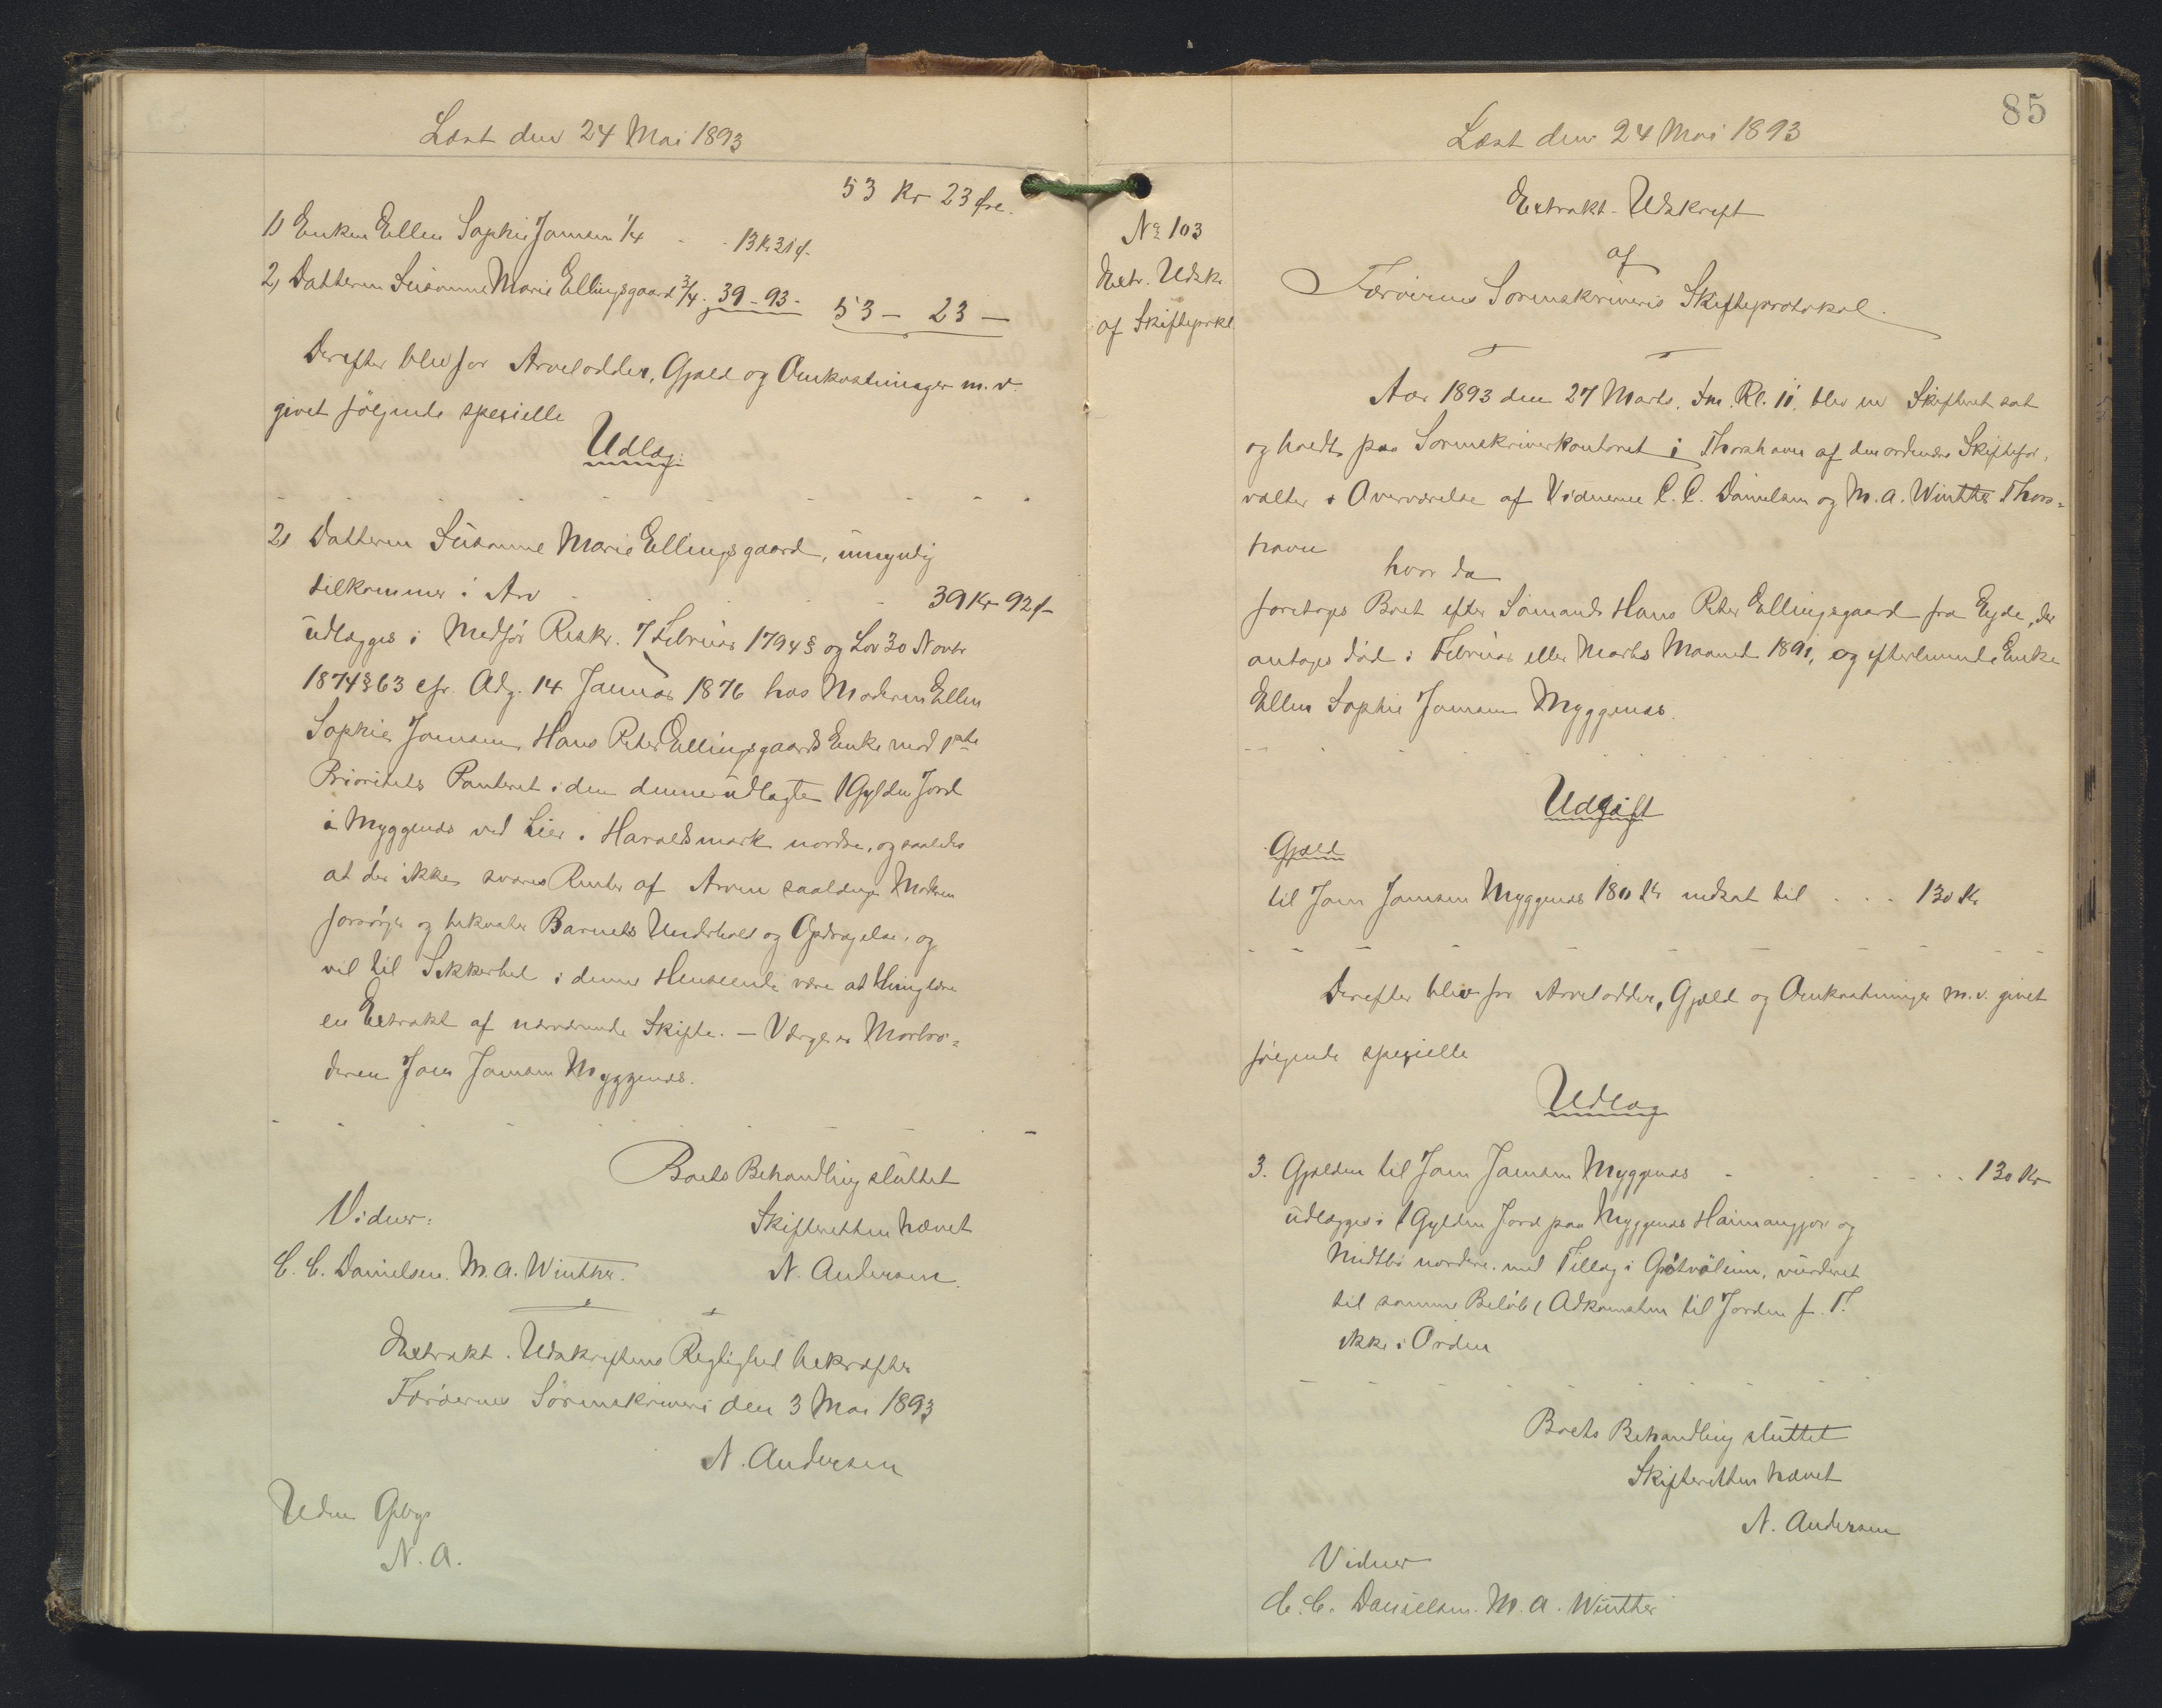 Læst den 24 Mai 1893
53 Kr 23 Øre.
1) Enken Ellen Sophie Joensen 1/4 - - 13 Kr 31 Ø.
2, Datteren Susanne Marie Ellingsgaard 3/4. 39 - 93 - 53 - 23 -
Derefter blev for Arvelodder, Gjæld og Omkostninger m.v.
givet følgende specielle
Udlæg:
2) Datteren Susanne Marie Ellingsgaard, umyndig
tilkommer i Arv - - - 39 Kr 92 Ø
udlægges i Medfør Reskr. 7 Februar 1794 § og Lov 30 Novbr
1874 § 63 cfr. Adg. 14 Januar 1876 hos Moderen Ellen
Sophie Joensen, Hans Peter Ellingsgaards Enke mod 1ste
Prioritets Panteret i den denne udlagte 1 Gylden Jord
i Myggenæs ved Lier i Haraldsmark nordre, og saaledes
at der ikke svares Renter af Arven saalænge Moderen
forsørger og bekoster Barnets Underhold og Opdragelse, og
vil til Sikkerhed i denne Henseende være at thinglæse
en Extrakt af nærværende Skifte. - Værge er Morbro-
deren Joen Joensen Myggenæs.
Boets Behandling sluttet
Vidner: Skifteretten hævet
C. C. Danielsen. M. A. Winther. N. Andersen.
Extrakt-Udskriftens Rigtighed bekræfter
Færøernes Sorenskriveri den 3 Mai 1893
N. Andersen
Uden Gebyr
N. A.
85
Læst den 24 Mai 1893
No 103
Extr. Udskr.
af Skifteprkl
Extrakt-Udskrift
af
Færøernes Sorenskriveris Skifteprotokol.
Aar 1893 den 27 Marts, Fm. Kl. 11, blev en Skifteret sat
og holdt paa Sorenskriverkontoret i Thorshavn af den ordinære Skiftefor-
valter i Overværelse af Vidnerne C. C. Danielsen og M. A. Winther Thors-
havn
hvor da
foretoges Boet efter Sømand Hans Peter Ellingsgaard fra Ejde, der
antages død i Februar eller Marts Maaned 1891, og efterlevende Enke
Ellen Sophie Joensen Myggenæs.
Udgift
Gjæld
til Joen Joensen Myggenæs 180 Kr nedsat til . . . 130 Kr
Derefter blev for Arvelodder, Gjæld og Omkostninger m.v. givet
følgende specielle
Udlæg
3. Gjælden til Joen Joensen Myggenæs - . . . 130 Kr
udlægges i 1 Gylden Jord paa Myggenæs Haimangjov og
Midtbø nordere. med Tillæg i Gøtvølinn, vurderet
til samme Beløb (Adkomsten til Jorden p. T.
ikke i Orden
Boets Behandling sluttet
Skifteretten hævet
N. Andersen
Vidner
C. C. Danielsen. M. A. Winther